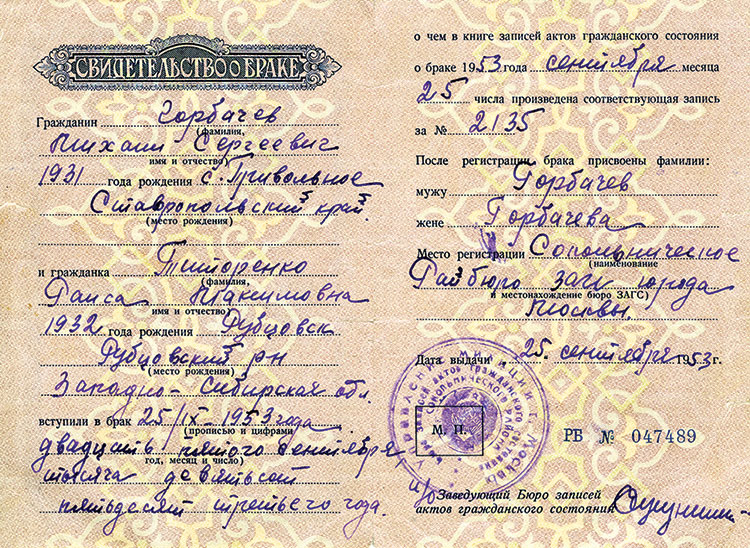 СВИДЕТЕЛЬСТВО О БРАКЕ
Гражданин Горбачев
(фамилия,
Михаил Сергеевич
имя и отчество)
1931 года рождения с. Привольное
Ставропольский край.
(место рождения)
и гражданка Титоренко
(фамилия,
Раиса Максимовна
имя и отчество)
1932 года рождения Рубцовск
Рубцовский р-н
(место рождения)
Западно-Сибирская обл.
вступили в брак 25/IX-1953 года
(прописью и цифрами
двадцать пятого сентября
год, месяц и число)
тысяча девятьсот
пятьдесят третьего года.
о чем в книге записей актов гражданского состояния
о браке 1953 года сентября месяца
25 числа произведена соответствующая запись
за № 2135
После регистрации брака присвоены фамилии:
мужу Горбачев
жене Горбачева
Место регистрации Сокольническое
(наименование
Райбюро ЗАГС города
и местонахождение бюро ЗАГС)
Москвы.
Дата выдачи 25. сентября 1953 г.
М. П.
РВ № 047489
и/о Заведующий Бюро записей
актов гражданского состояния